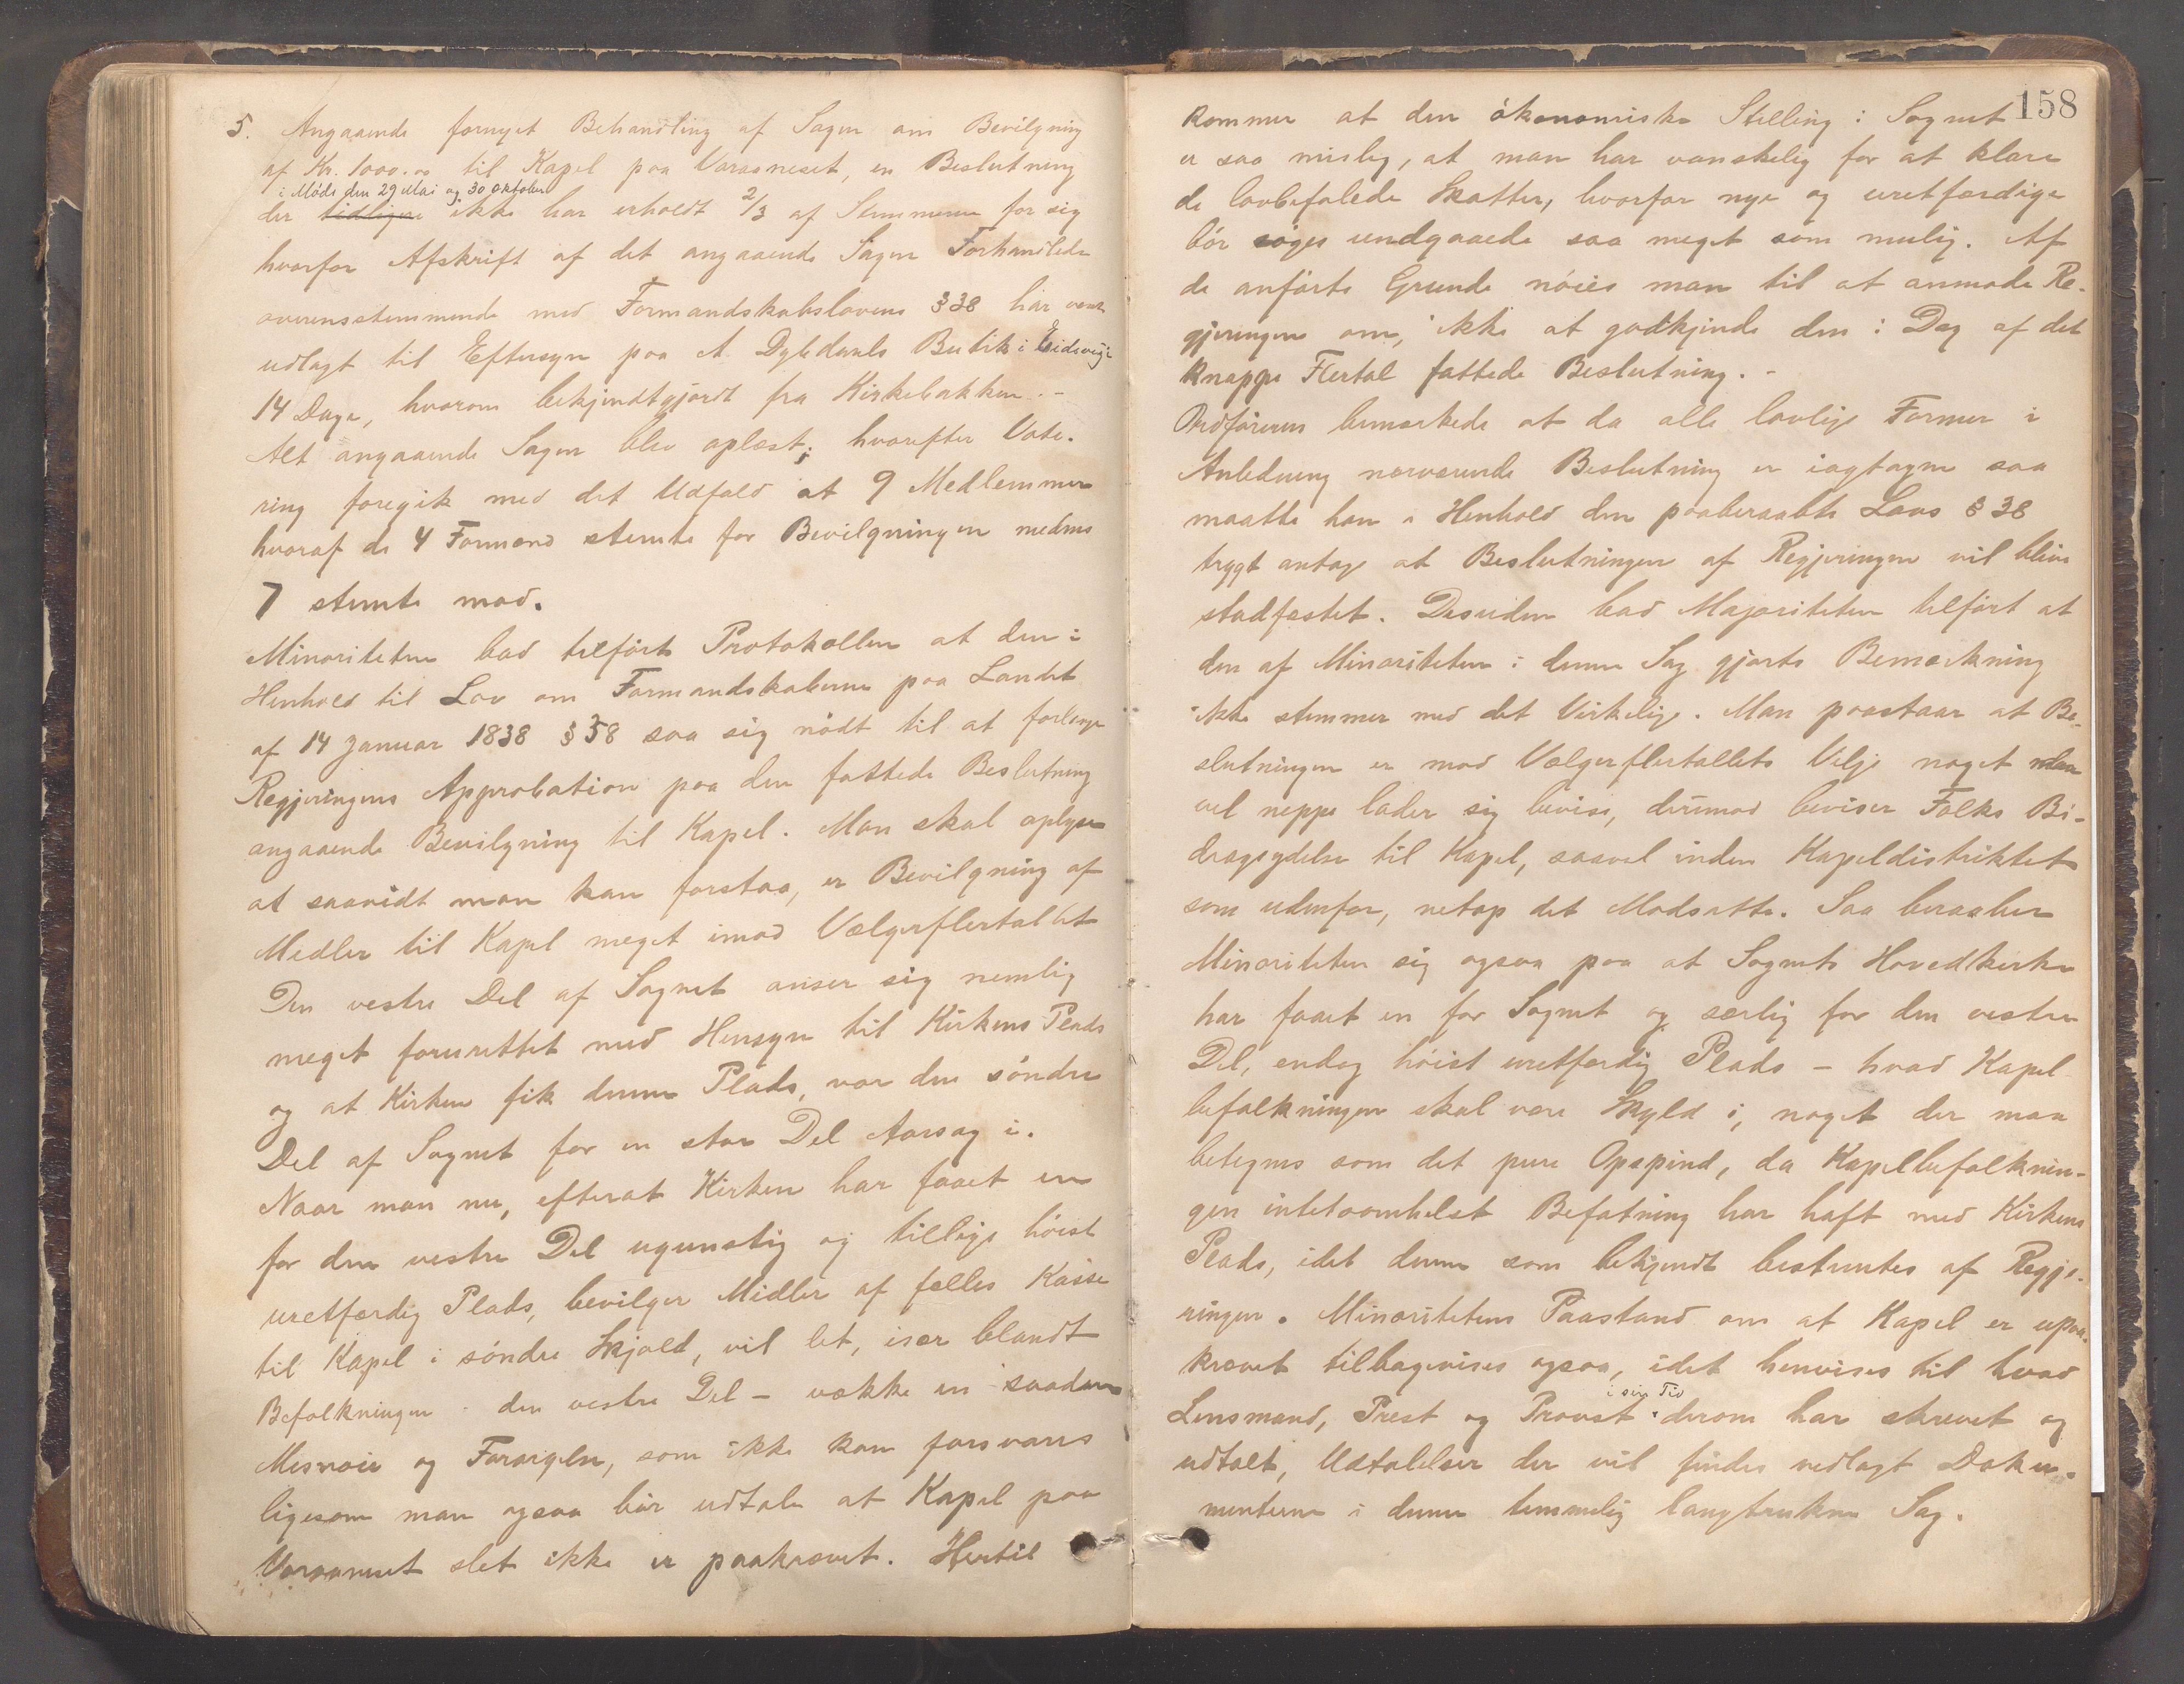 5. Angaaende fornyet Behandling af Sagen om Bevilgning
af Kr. 1000.00 til Kapel paa Varaneset, en Beslutning
i Möde den 29 Mai og 30 Oktober
der tidligere ikke har erholdt 2/3 af Stemmerne for sig
hvorfor Afskrift af det angaaende Sagen Forhandlede
overensstemmende med Formandskabslovens § 38 har været
udlagt til Eftersyn paa A. Butik i
14 Dage, hvorom bekjendtgjordt fra Kirkebakken. -
Alt angaaende Sagen blev oplæst; hvorefter Vote-
ring foregik med det Udfald at 9 Medlemmer
hvoraf de 4 Formænd stemte for Bevilgningen medens
7 stemte mod.
Minoriteten bad tilført Protokollen at den i
Henhold til Lov om Formandskaberne paa Landet
af 14 Januar 1838 § 38 saa sig nödt til at forlange
Regjeringens Approbation paa den fattede Beslutning
angaaende Bevilgning til Kapel. Man skal oplyse
at saavidt man kan forstaa, er Bevilgning af
Midler til Kapel meget imod Vælgerflertallet
Den vestre Del af Sognet anser sig nemlig
meget forurettet med Hensyn til Kirkens Plads
og at Kirken fik denne Plads, var den söndre
Del af Sognet for en stor Del Aarsag i.
Naar man nu, efterat Kirken har faaet en
for den vestre Del ugunstig og tillige höist
uretfærdig Plads, bevilger Midler af fælles Kasse
til Kapel i söndre Skjold, vil let, især blandt
Befolkningen i den vestre Del - vække en saadan
Misnöie og Forargelse, som ikke kan forsvares
ligesom man ogsaa bör udtale at Kapel paa
Varaneset slet ikke er paakrævet. Hertil
158
kommer at den ökonomiske Stilling i Sognet
er saa mislig, at man har vanskelig for at klare
de lovbefalede Skatter, hvorfor nye og uretfærdige
bör söges undgaaede saa meget som mulig. Af
de anförte Grunde nöies man til at anmode Re-
gjeringen om, ikke at godkjende den i Dag af det
knappe Flertal fattede Beslutning. -
Ordföreren bemærkede at da alle lovlige Former i
Anledning nærværende Beslutning er iagtagne saa
maatte han i Henhold den paaberaabte Lovs § 38
trygt antage at Beslutningen af Regjeringen vil blive
stadfæstet. Desuden bad Majoriteten tilfört at
den af Minoriteten i denne Sag gjorte Bemærkning
ikke stemmer med det Virkelige. Man paastaar at Be-
slutningen er mod Vælgerflertallets Vilje noget
vel neppe lader sig bevise, derimod beviser Folks Bi-
dragsydelse til Kapel, saavel inden Kapeldistriktet
som udenfor, netop det Modsatte. Saa beraaber
Minoriteten sig ogsaa paa at Sognets Hovedkirke
har faaet en for Sognet og særlig for den vestre
Del, endog höist uretfærdig Plads - hvad Kapel-
befolkningen skal være Skyld i, noget der maa
betegnes som det pure Opspind, da Kapelbefolknin-
gen intetsomhelst Befatning har haft med Kirkens
Plads, idet denne som bekjendt bestemtes af Regje-
ringen. Minoritetens Paastand om at Kapel er upaa-
krævet tilbagevises ogsaa, idet henvises til hvad
i sin Tid
Lensmand, Prest og Provst derom har skrevet og
udtalt, Udtalelser der vil findes vedlagt Doku-
menterne i denne temmelig langtrukne Sag.